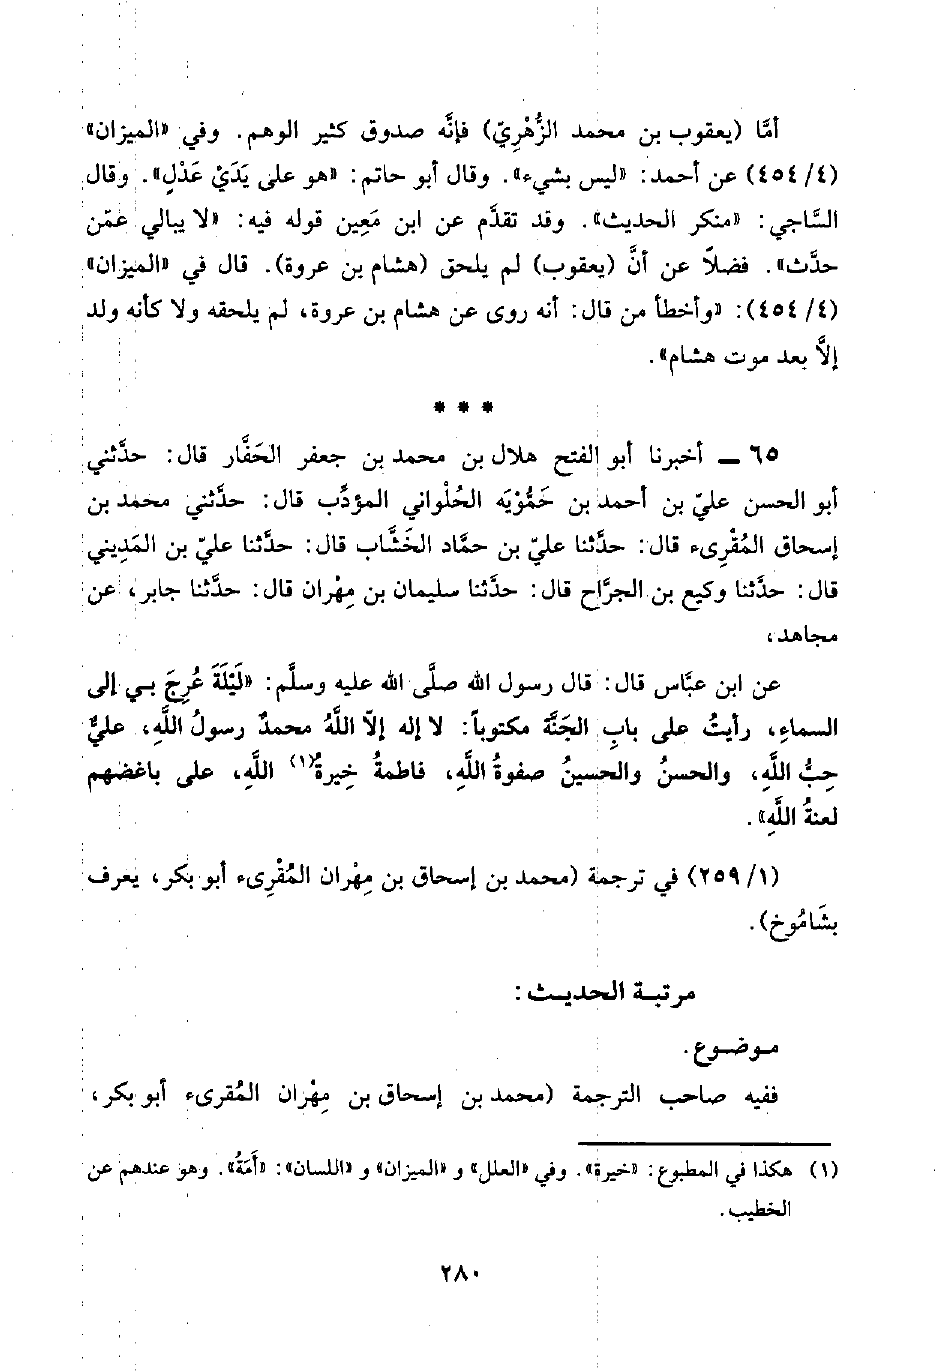 أمَّا (يعقوب بن محمد الزُّهْرِيّ) فإنَّه صدوق كثير الوهم. وفي «الميزان»
(٤/ ٤٥٤) عن أحمد: «ليس بشيء». وقال أبو حاتم: «هو على يَدَيْ عَدْلٍ». وقال
السَّاجي: «منكر الحديث». وقد تقدَّم عن ابن مَعِين قوله فيه: «لا يبالي عمّن
حدَّث». فضلاً عن أنَّ (يعقوب) لم يلحق (هشام بن عروة). قال في «الميزان»
(٤/ ٤٥٤): «وأخطأ من قال: أنه روى عن هشام بن عروة، لم يلحقه ولا كأنه ولد
إلاَّ بعد موت هشام».
* * *
٦٥ ــ أخبرنا أبو الفتح هلال بن محمد بن جعفر الحَفَّار قال: حدَّثني
أبو الحسن عليّ بن أحمد بن حَمُّوْيَه الحُلْواني المؤدِّب قال: حدَّثني محمد بن
إسحاق المُقْرِىء قال: حدَّثنا عليّ بن حمَّاد الخَشَّاب قال: حدَّثنا عليّ بن المَدِيني
قال: حدَّثنا وكيع بن الجرَّاح قال: حدَّثنا سليمان بن مِهْران قال: حدَّثنا جابر، عن
مجاهد،
عن ابن عبَّاس قال: قال رسول الله صلَّى الله عليه وسلَّم: «لَيْلَةَ عُرِجَ بي إلى
السماءِ، رأيتُ على بابِ الجَنَّة مكتوباً: لا إله إلاّ اللَّهُ محمدٌ رسولُ اللَّهِ، عليٌّ
حِبُّ اللَّهِ، والحسنُ والحسينُ صفوةُ اللَّهِ، فاطمةُ خِيرةُ(١) اللَّهِ، على باغضهم
لعنةُ اللَّهِ».
(١/ ٢٥٩) في ترجمة (محمد بن إسحاق بن مِهْران المُقْرِىء أبو بكر، يعرف
بشَامُوخ).
مرتبة الحديث:
موضوع.
ففيه صاحب الترجمة (محمد بن إسحاق بن مِهْران المُقرىء أبو بكر،
(١) هكذا في المطبوع: «خيرة». وفي «العلل» و «الميزان» و «اللسان»: «أَمَةُ». وهو عندهم عن
الخطيب.
٢٨٠